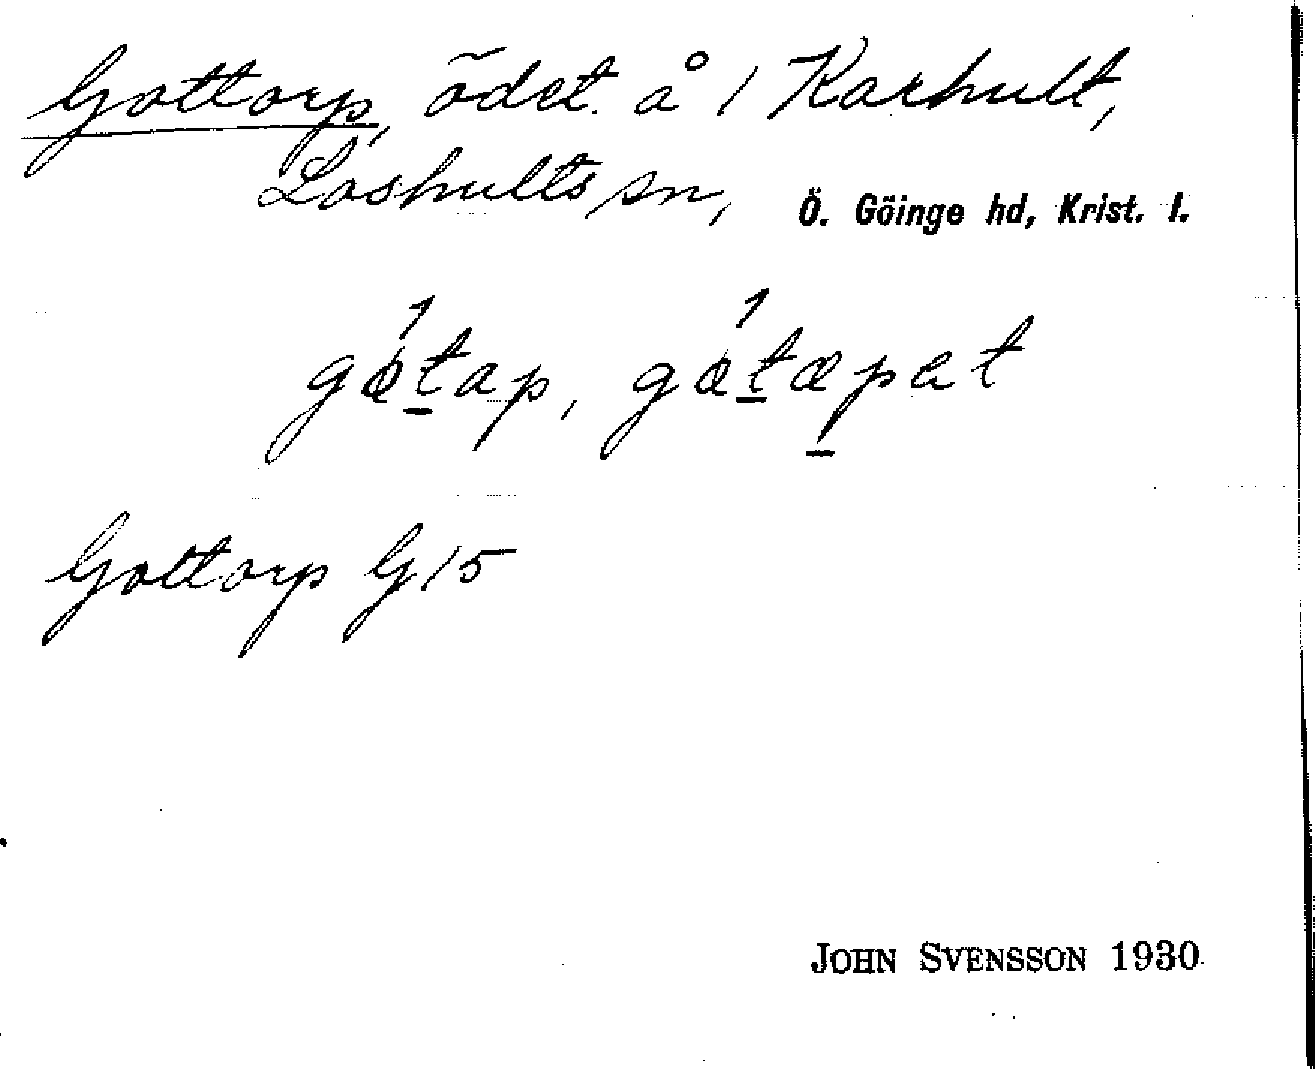 Gottorp, ödet. å 1 Karhult,
Loshults sn, Ö. Göinge hd, Krist. l.
Gottorp G 15
JOHN SVENSSON 1930